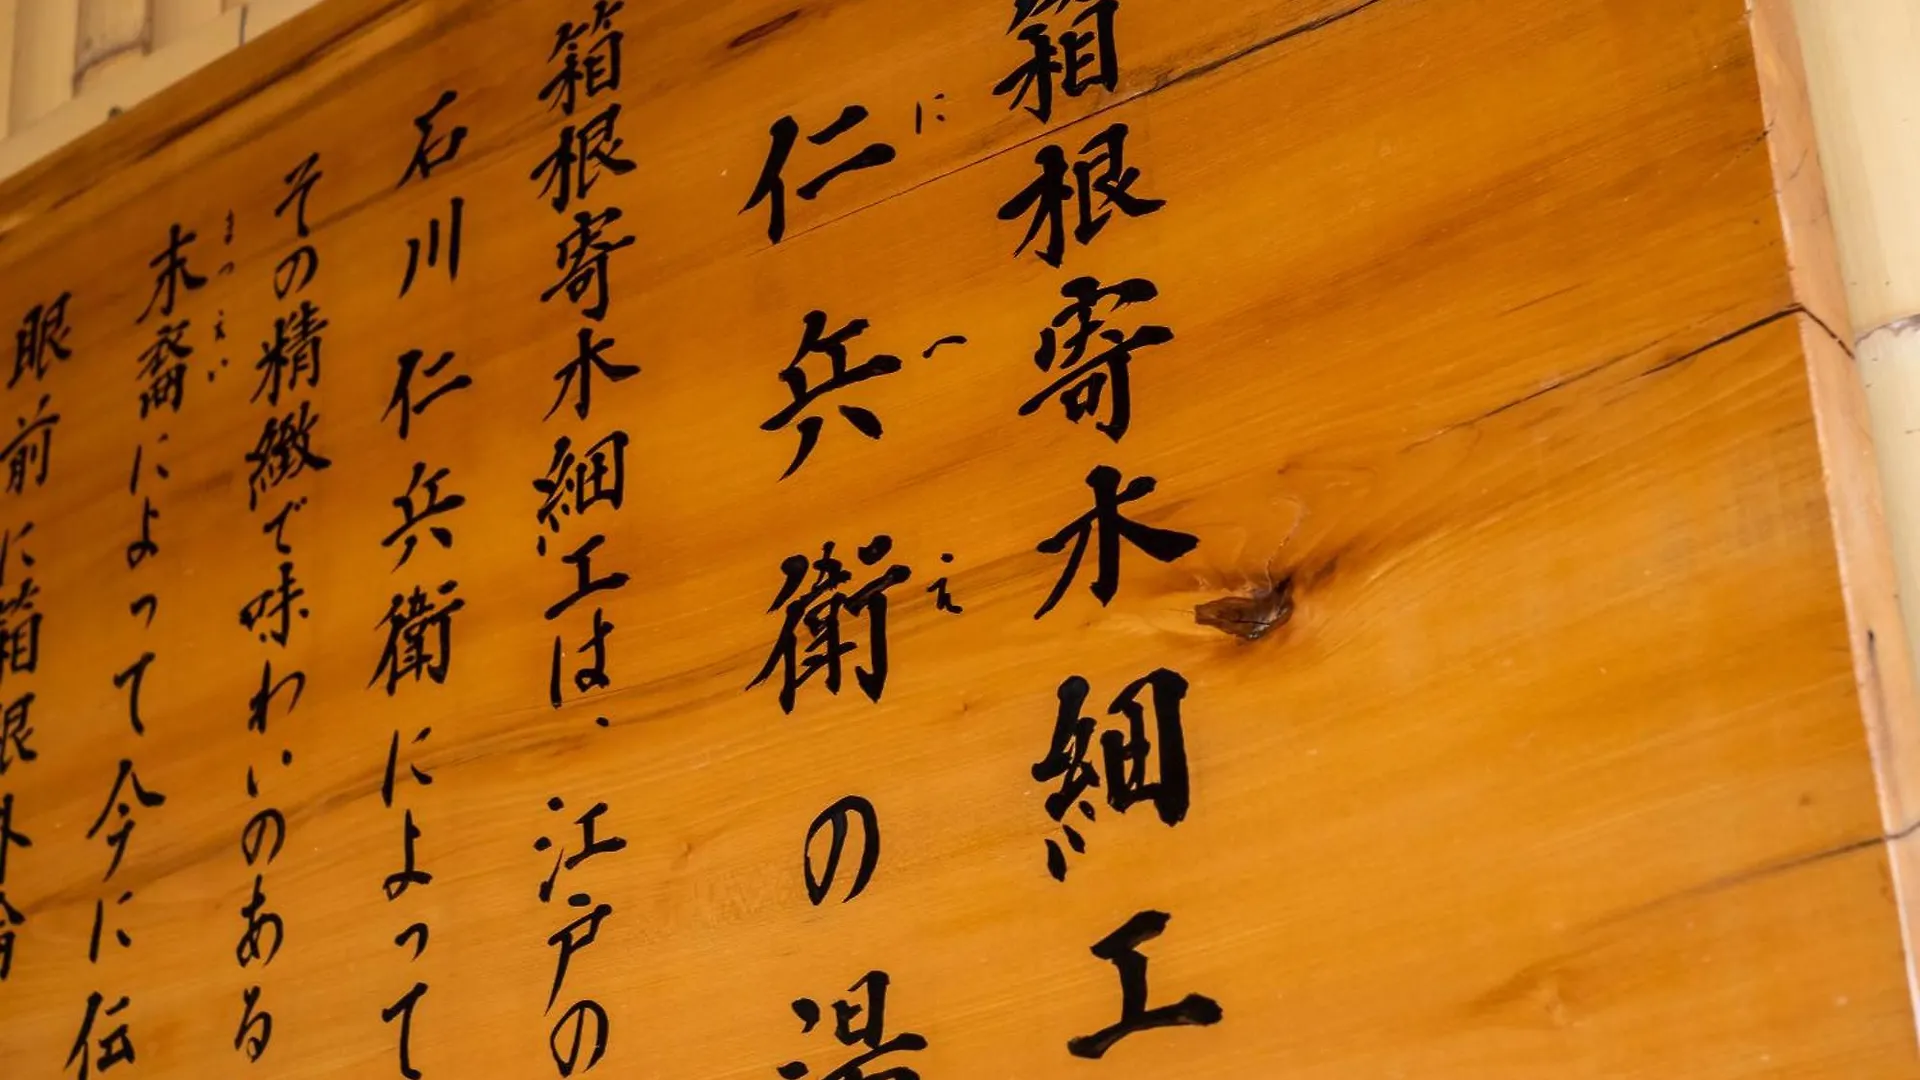 箱根寄木細工
仁兵衛の湯
にへえ
箱根寄木細工は、江戸の
石川仁兵衛によって
その精緻で味わいのある
末裔によって今に伝
まつえい
眼前に箱根外輪